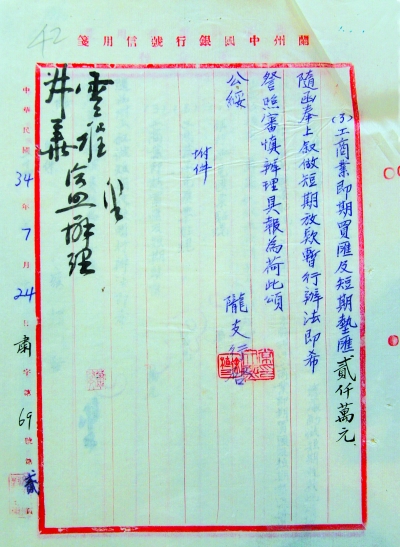 42
蘭州中國銀行號信用箋
(3)工商業即期買匯及短期墊匯貳仟萬元
隨函奉上叙做短期放款暫行辦法即希
詧照審慎辦理具報為荷此頌
公綏
隴支行啓
附件
辦理
中華民國34年7月24日肅字第69號第貳頁